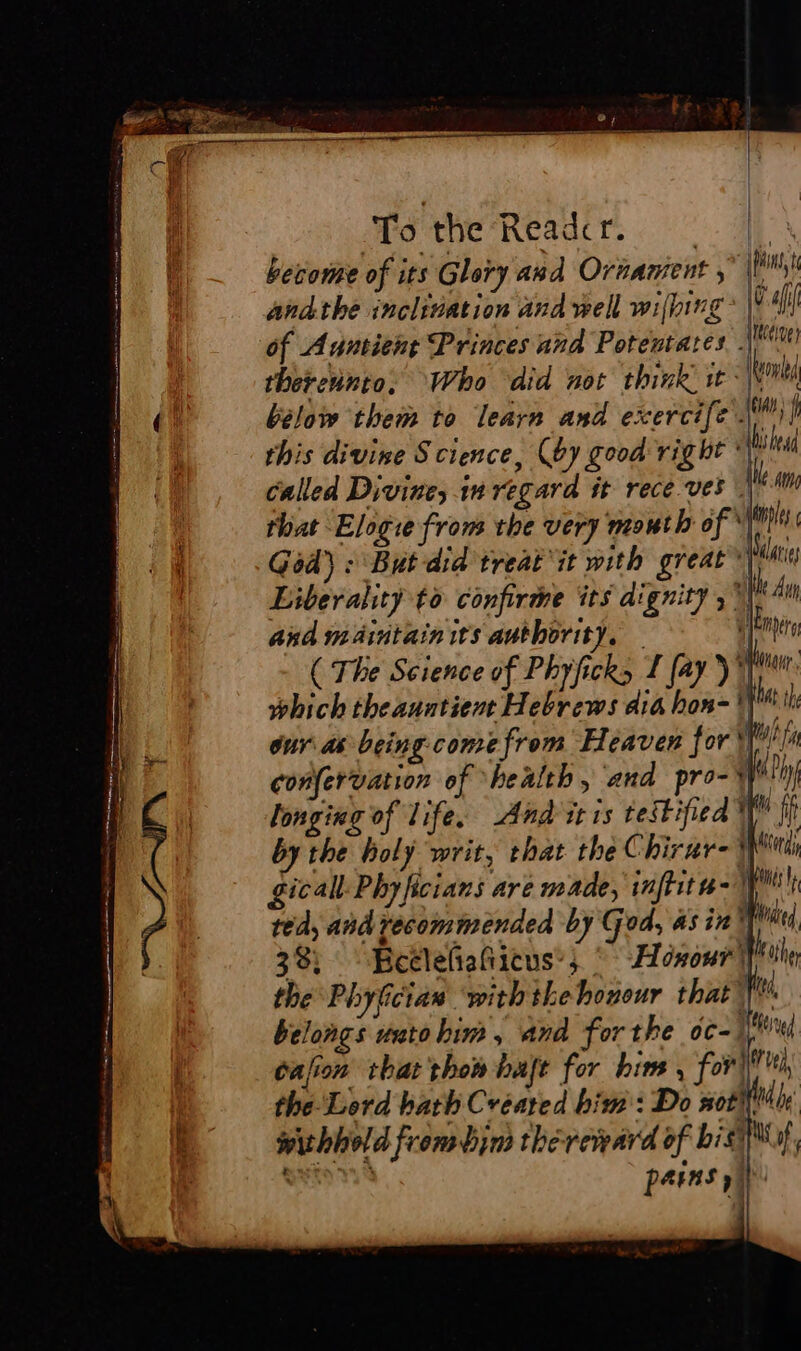 To the Reader.
become of its Glory and Ornament,
and the inclination and well wiſhing
of Auntient Princes and Potentates
thereunto. Who did not think it
below them to learn and exerciſe
this divine Science, (by good right
called Divine, in regard it receives
that Elogie from the very mouth of
God) : But did treat it with great
Liberality to confirme its dignity,
and maintain its authority.
(The Science of Phyſick, I ſay)
which the auntient Hebrews did hon-
our as being come from Heaven for
conſervation of health, and pro-
longing of life. And it is teſtified
by the holy writ, that the Chirur-
gicall Phyſicians are made, inſtitu-
ted, and recommended by God, as in
38; Eccleſiaſticus; Honour
the Phyſician with the honour that
belongs unto him, and for the oc-
caſion that thou haſt for him, for
the Lord hath Created him: Do not
withhold from him the reward of his
pains,